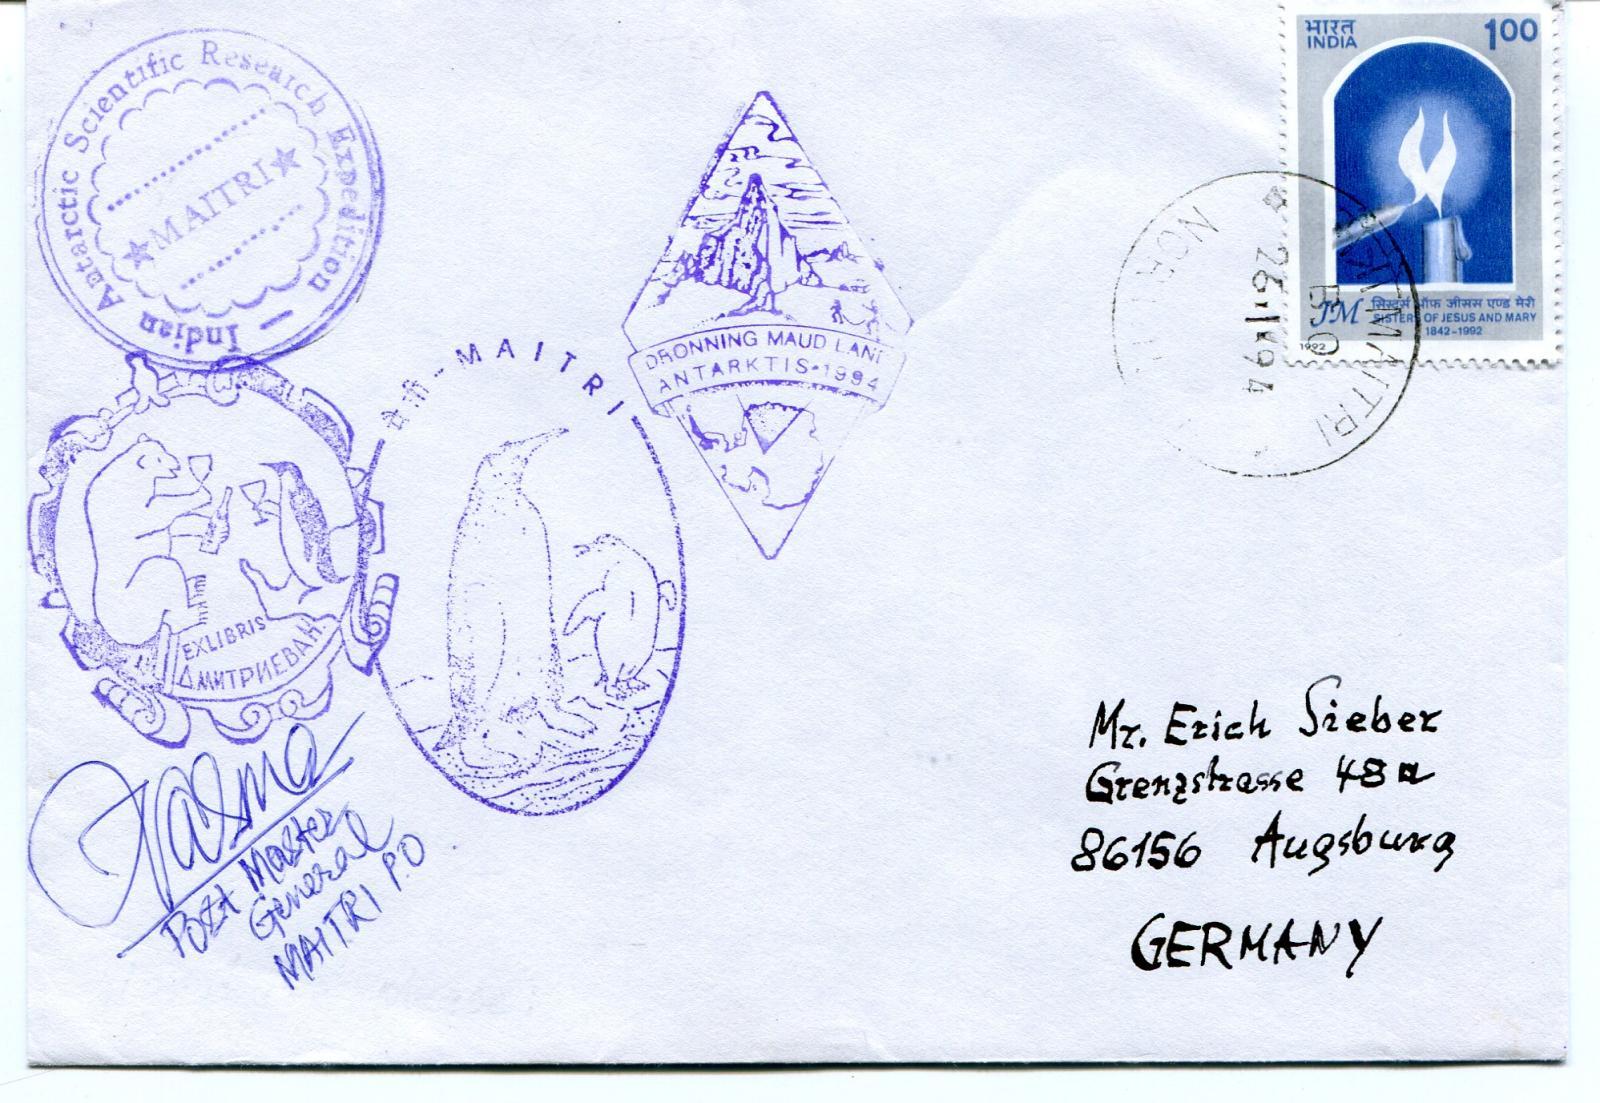 Indian Antarctic Scientific Research Expedition
MAITRI
भारत
INDIA
100
JM
सिस्टर्स ऑफ जीसस एण्ड मेरी
SISTERS OF JESUS AND MARY
1842-1992
1992
MAITRI
DRONNING MAUD LAND
ANTARKTIS-1994
- MAITRI
EXLIBRIS
ДМИТРИЕВАН
Post Master
General
MAITRI P.O
Mr. Erich Sieber
Grenzstrasse 48a
86156 Augsburg
GERMANY